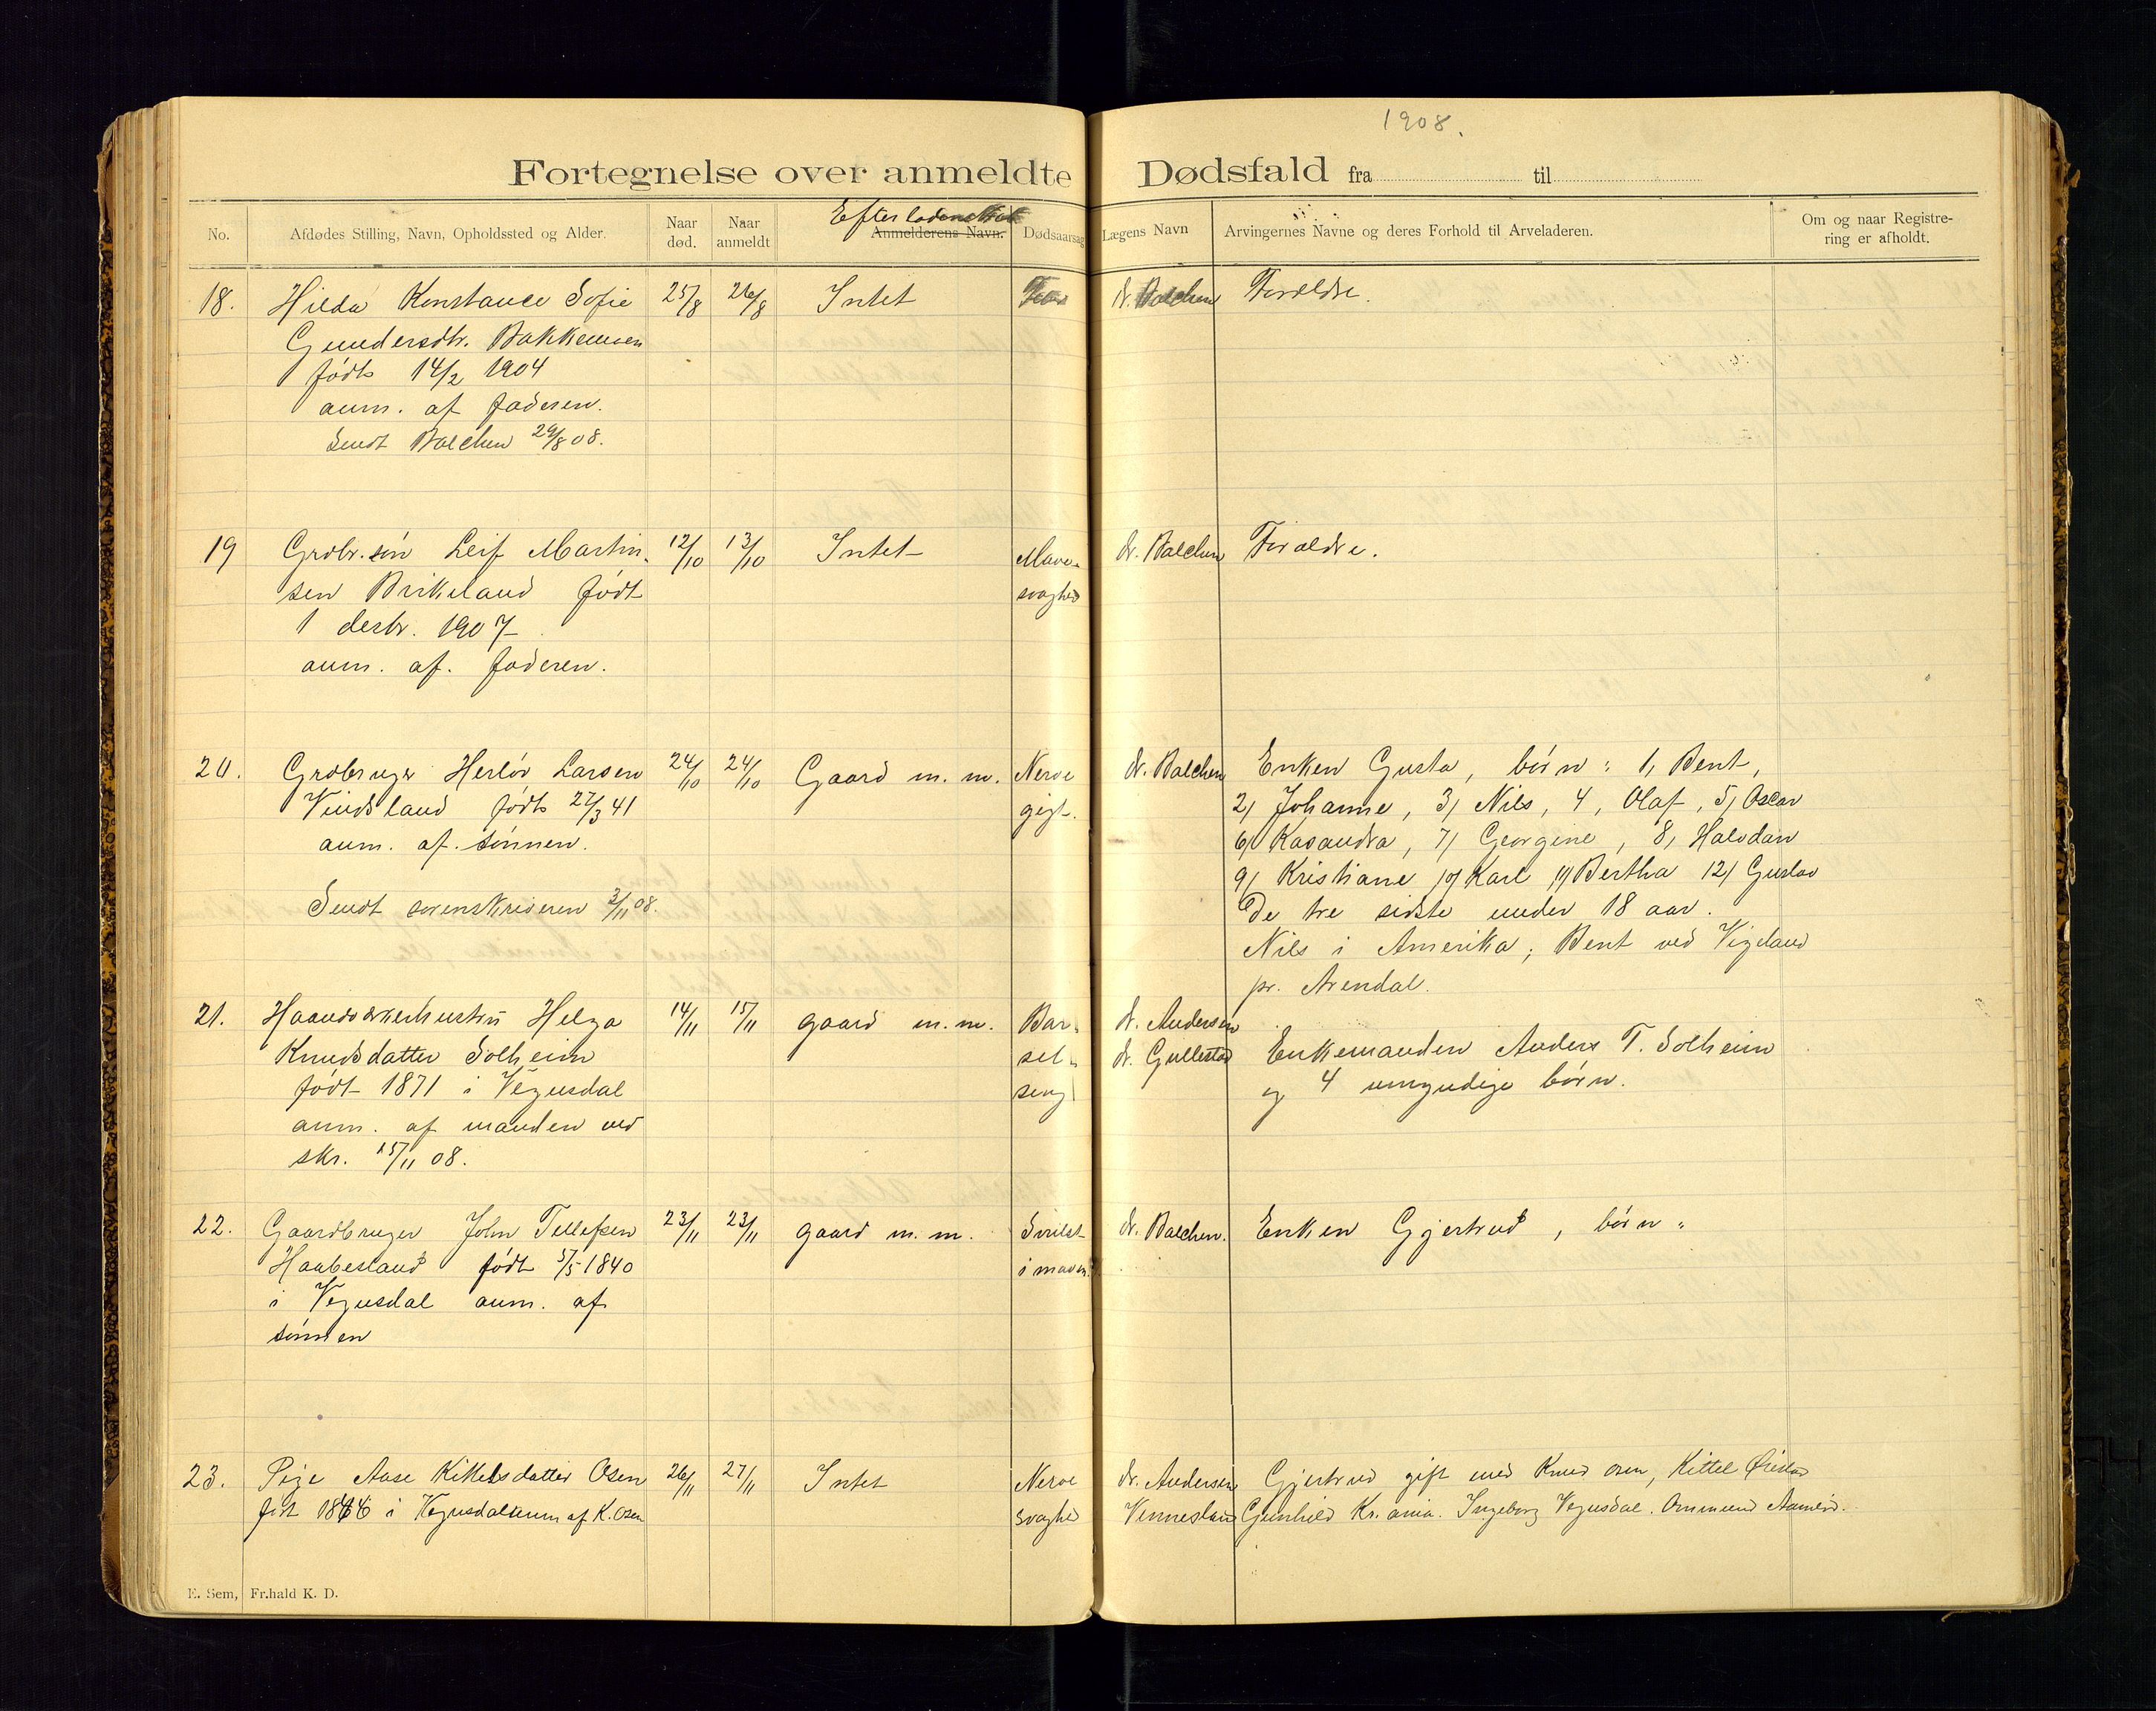 1908.
Fortegnelse over anmeldte Dødsfald fra til
No. Afdødes Stilling, Navn, Opholdssted og Alder. Naar død. Naar anmeldt Efterladenskab Anmelderens Navn. Dødsaarsag Lægens Navn Arvingernes Navne og deres Forhold til Arveladeren. Om og naar Registrering er afholdt.
18. Hilda Konstance Sofie 25/8 26/8 Intet dr. Balchen Forældre.
Gundersdtr. Bakkemoen
født 14/2 1904
anm. af faderen.
Sendt Balchen 29/8 08.
19 Grdbr. søn Leif Martin- 12/10 13/10 Intet Mave- dr. Balchen Forældre.
sen Birkeland født svaghed
1 desbr. 1907
anm. af. faderen.
20. Grdbruger Herløv Larsen 24/10 24/10 Gaard m. m. Nerve dr. Balchen Enken Gusta, børn: 1, Bent,
Vindsland født 27/3 41 gigt. 2) Johanne, 3) Nils, 4, Olaf, 5) Oscar
anm. af. sønnen. 6) Kasandra, 7) Georgine, 8, Halvdan
9) Kristiane 10) Karl 11) Bertha 12) Gustav
Sendt sorenskriveren 2/11 08. De tre sidste under 18 aar.
Nils i Amerika; Bent ved Vigeland
pr. Arendal.
21. Haandværkerhustru Helga 14/11 15/11 gaard m. m. Bar- dr. Andersen
Knudsdatter Solheim sel- dr. Gullestad Enkemanden Anders T. Solheim
født 1871 i Vegusdal seng og 4 umyndige børn.
anm. af manden ved
skr. 15/11 08.
22. Gaardbruger John Tellefsen 23/11 23/11 gaard m. m. Svulst dr. Balchen. Enken Gjertrud, børn:
Haabesland født 5/5 1840 i maven
i Vegusdal anm. af
sønnen
23. Pige Aase Kittelsdatter Osen 26/11 27/11 Intet Nerve dr. Andersen Gjertrud gift med Knud Osen, Kittel
født 1846 i Vegusdal anm af K. Osen svaghed Vennesland Gunhild Kr.ania. Ingeborg Vegusdal. Ommund
E. Sem, Fr.hald K. D.